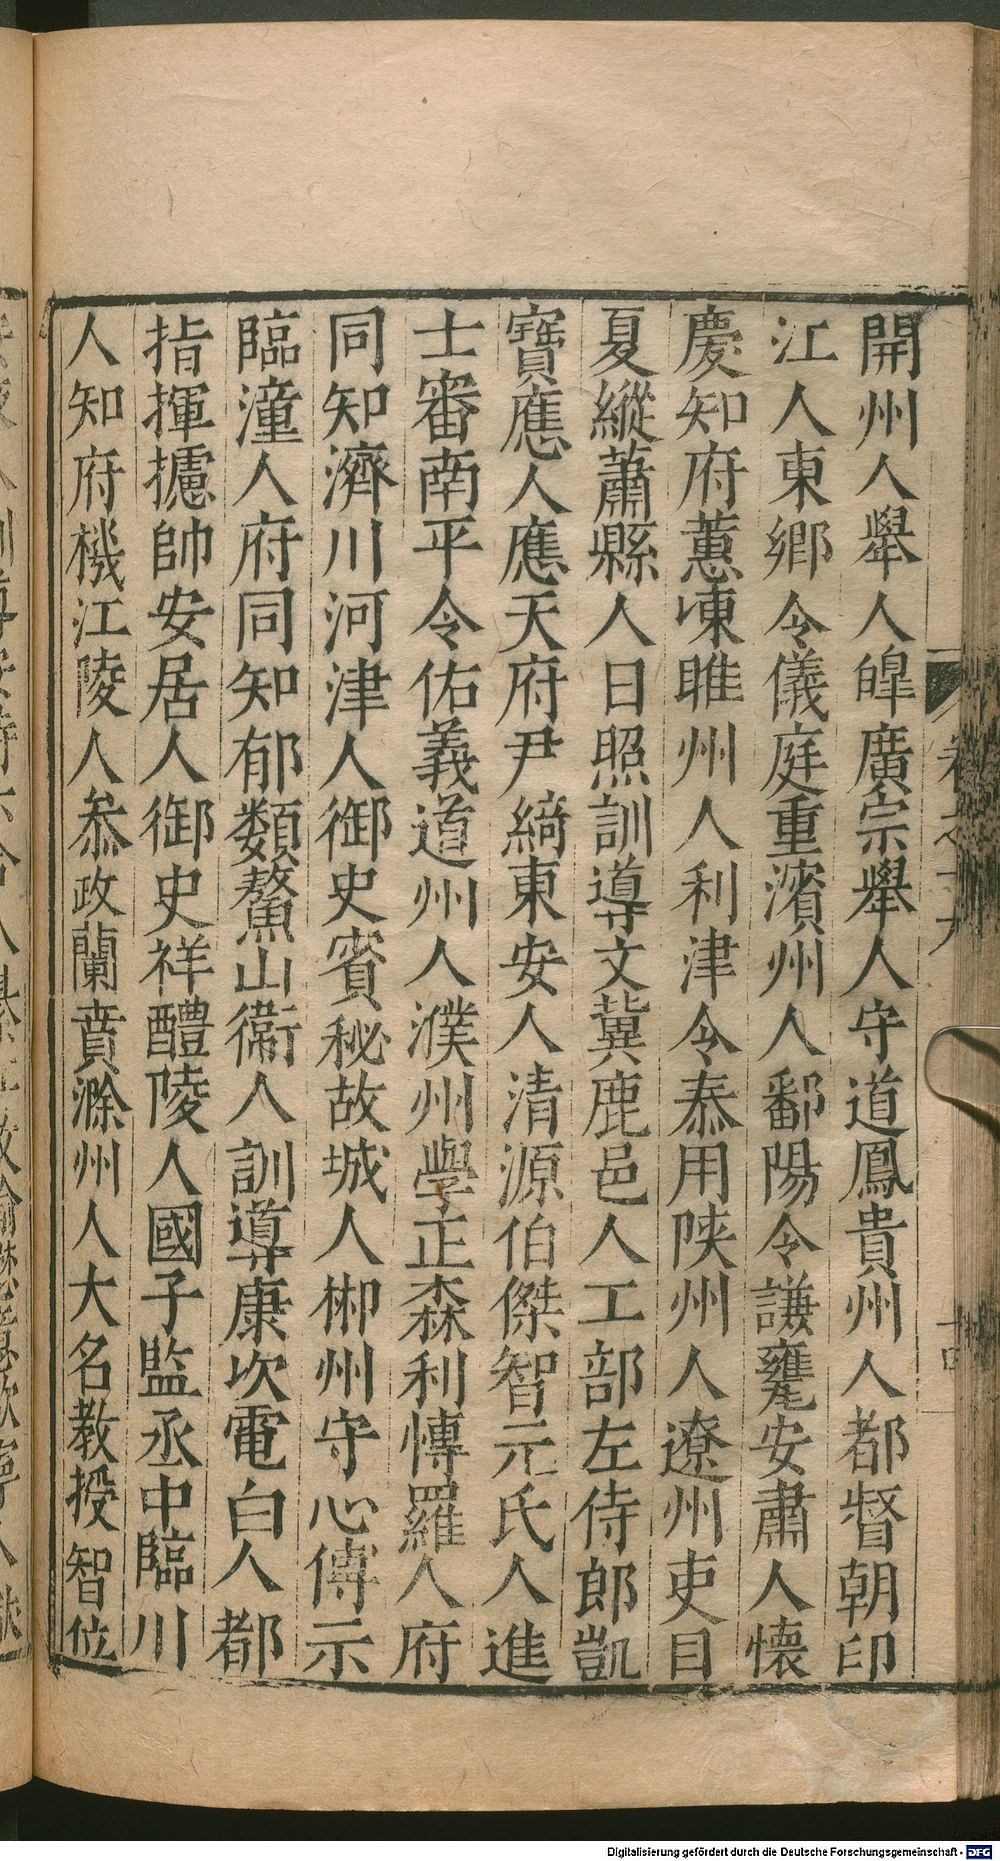 開州人舉人皡廣宗舉人守道鳳貴州人都督朝印
江人東鄉令儀庭重濱州人鄱陽令謙甕安肅人懷
慶知府蕙棟睢州人利津令泰用陜州人遼州吏目
夏縱蕭縣人日照訓導文冀鹿邑人工部左侍郎凱
寶應人應天府尹綺東安人清源伯傑智元氏人進
士審南平令佑義道州人濮州學正森利慱羅人府
同知濟川河津人御史賓秘故城人郴州守心傅示
臨潼人府同知郁類鰲山衞人訓導康坎電白人都
指揮攄帥安居人御史祥醴陵人國子監丞中臨川
人知府機江陵人叅政蘭賁滁州人大名教授智位
卷之十九
十四
Digitalisierung gefördert durch die Deutsche Forschungsgemeinschaft - DFG